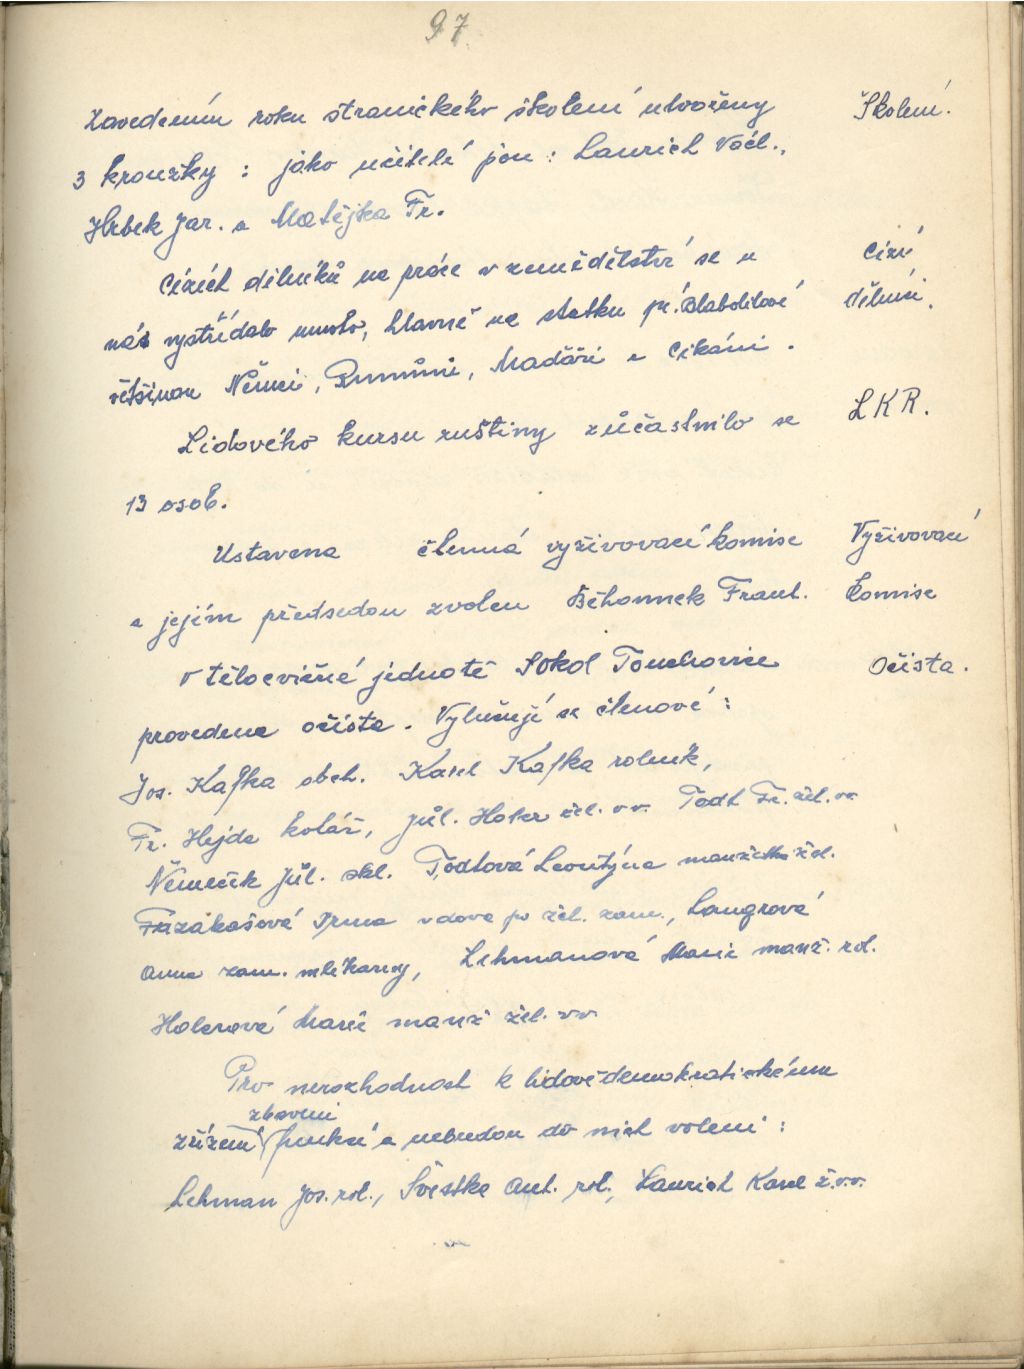 97
Zavedením roku stranického školení utvořeny Školení.
3 kroužky : jako učitelé jsou : Laurich Václ.,
Hrbek Jar. a Matějka Fr.
Cizích dělníků na práce v zemědělství se u Cizí
nás vystřídalo mnoho, hlavně na statku pí. Blabolilové dělníci.
většinou Němci, Rumůni, Maďaři a Cikáni.
Lidového kursu ruštiny zůčastnilo se LKR.
13 osob.
Ustavena členná vyživovací komise Vyživovací
a jejím předsedou zvolen Běhounek Frant. komise
V tělocvičné jednotě Sokol Touchovice Očista.
provedena očista. Vylučují se členové :
Jos. Kafka obch. Karel Kafka rolník,
Fr. Hejda kolář, Júl. Holer žel. v.v. Todt Fr. žel. vv
Němeček Júl. skl. Todtová Leontýna manželka žel.
Irma vdova po žel. zam., Langrová
Anna zam. mlékárny, Lehmanová Marie manž. rol.
Holerová Marie manž žel. vv
Pro nerozhodnost k lidovědemokratickému
zbaveni
zřízení funkcí a nebudou do nich voleni :
Lehman Jos. rol., Švestka Ant. rol., Laurich Karel ž.v.v.